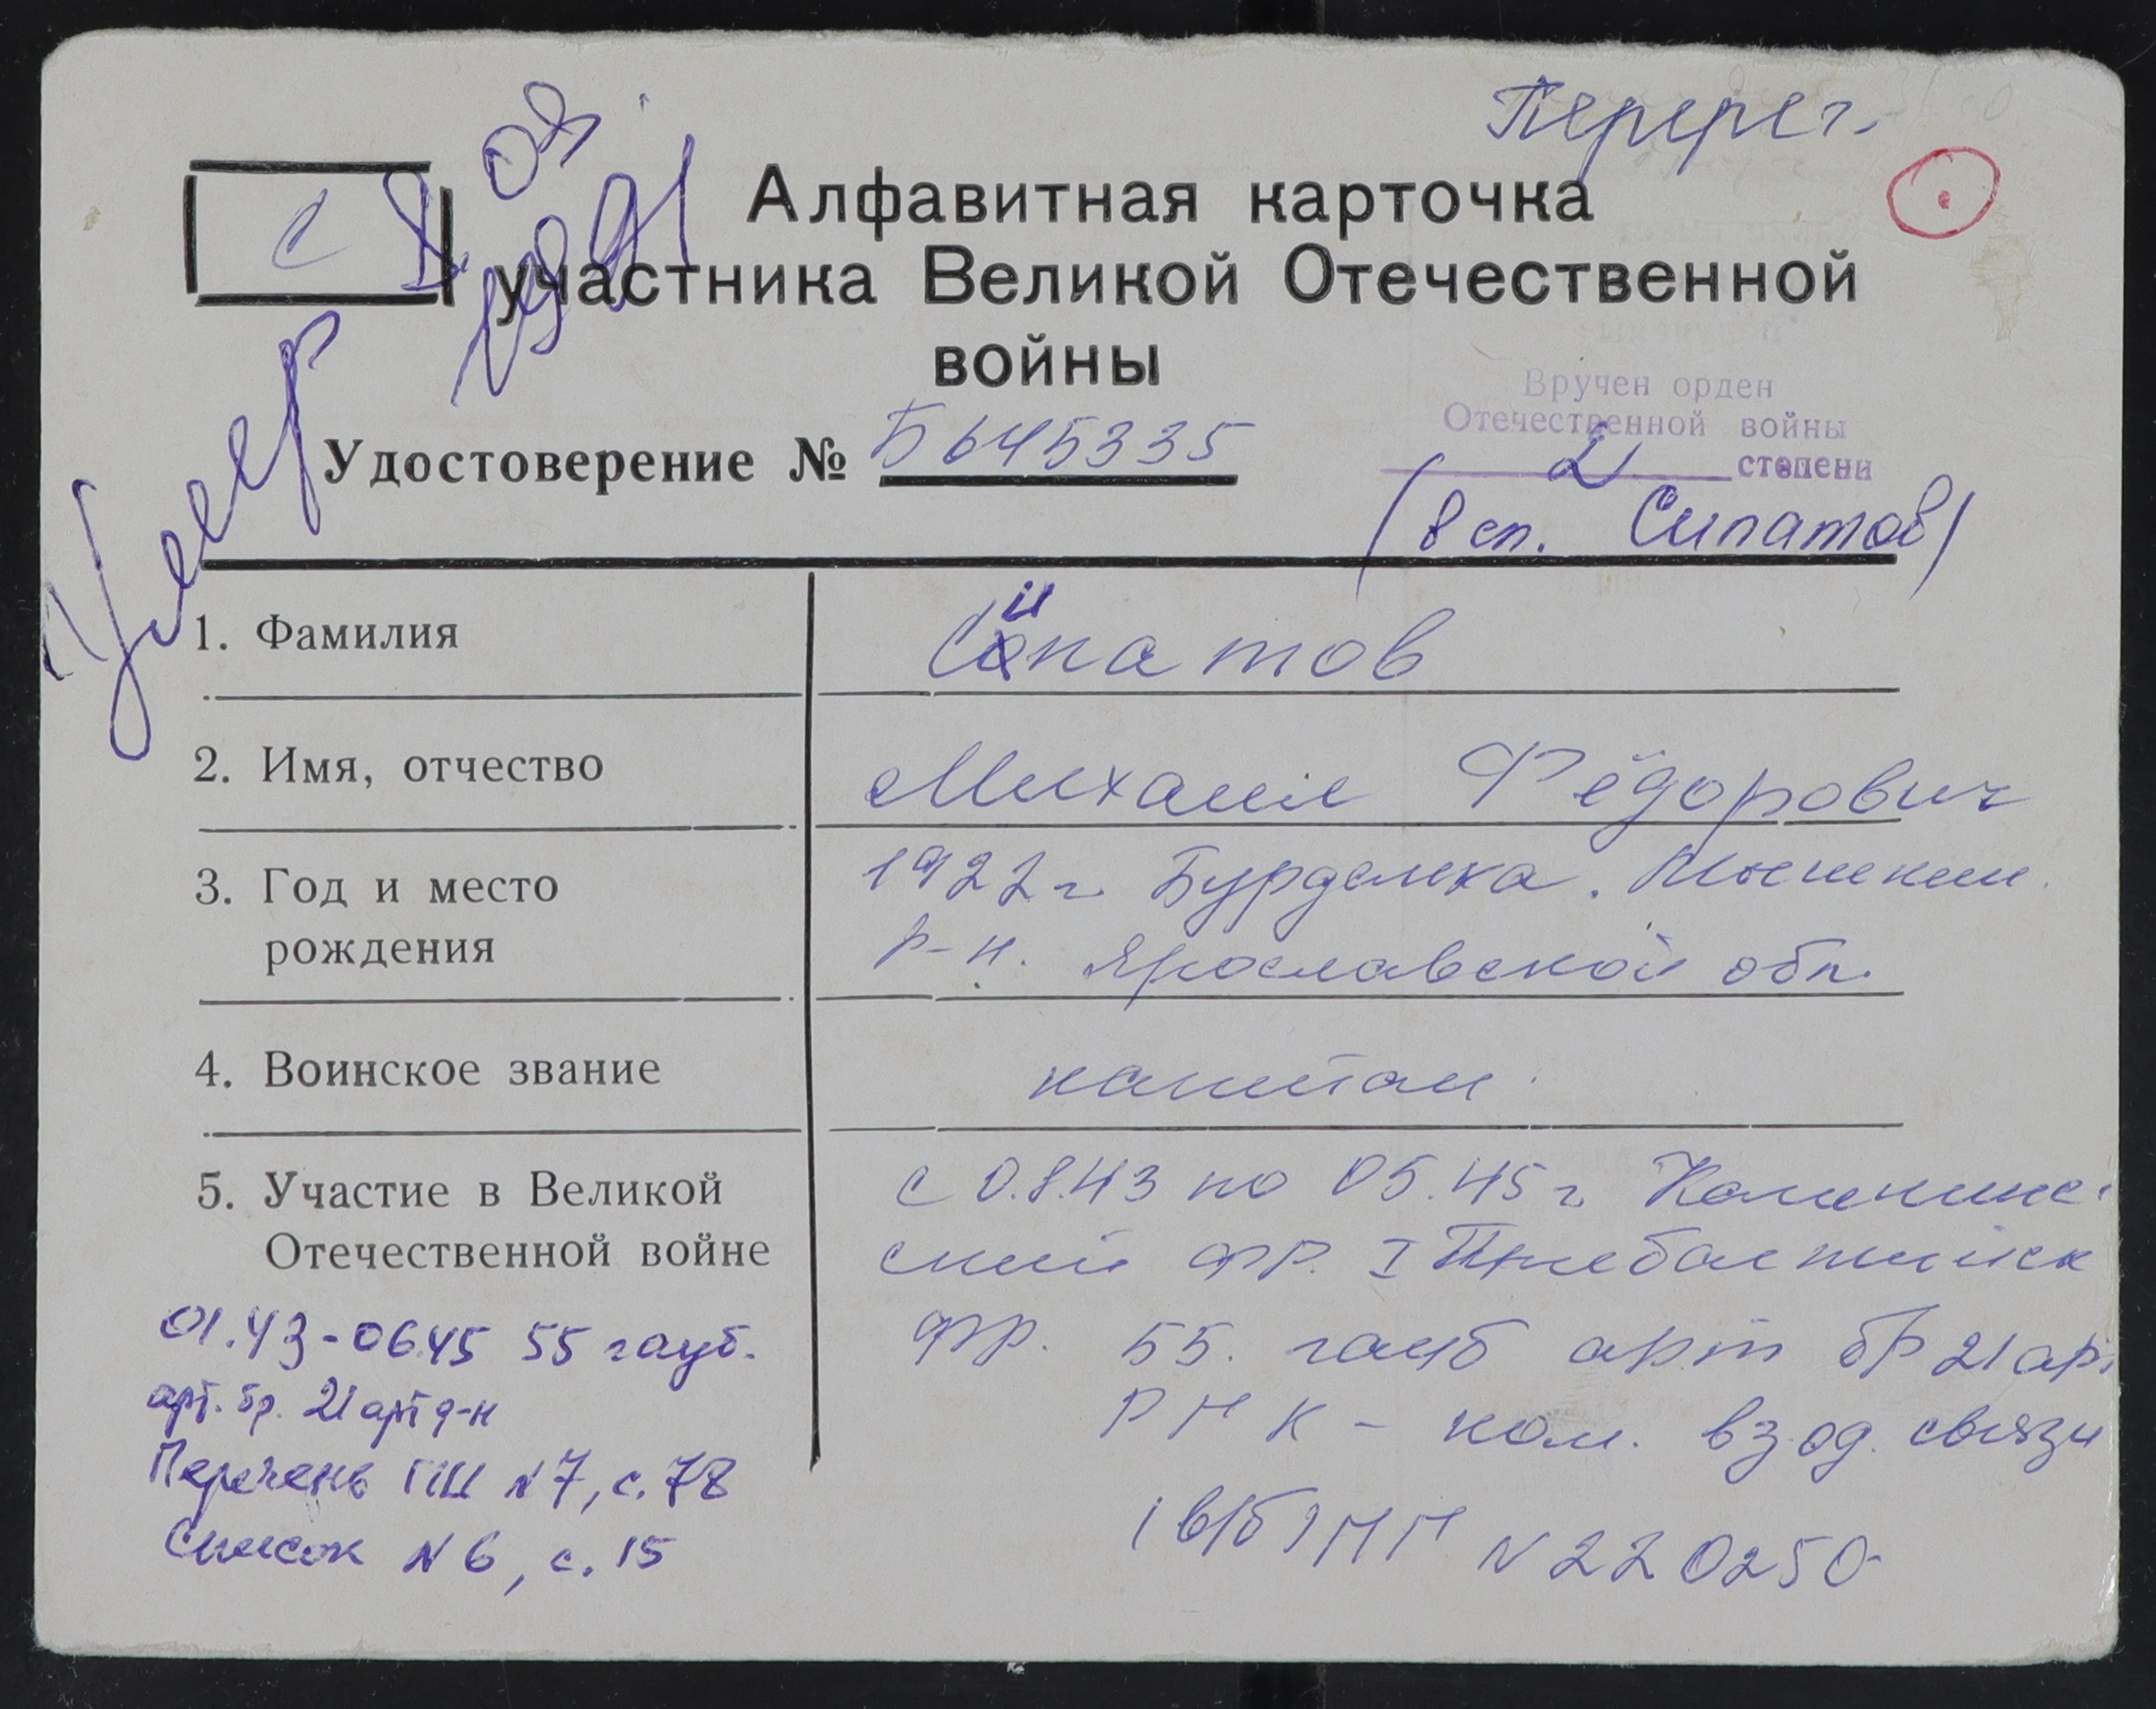 Перерег.
С
Умер
08.
1991
Алфавитная карточка
участника Великой Отечественной
войны
Удостоверение № Б 645335
Вручен орден
Отечественной войны
2 степени
(в сп. Сипатов)
1. Фамилия
Сипатов
2. Имя, отчество
Михаил Фёдорович
3. Год и место
рождения
1922 г Мышкин.
р-н. Ярославской обл.
4. Воинское звание
капитан
5. Участие в Великой
Отечественной войне
с 0.8.43 по 05.45 г. Калининс
ский фр. I Прибалтийск
фр. 55. гауб арт бр 21 арт
РГК - ком. вз.од. связи
(в/б) № 220250
01.43-06.45 55 гауб.
арт. бр. 21 арт д-н
Перечень ГШ № 7, с. 78
Список № 6, с. 15